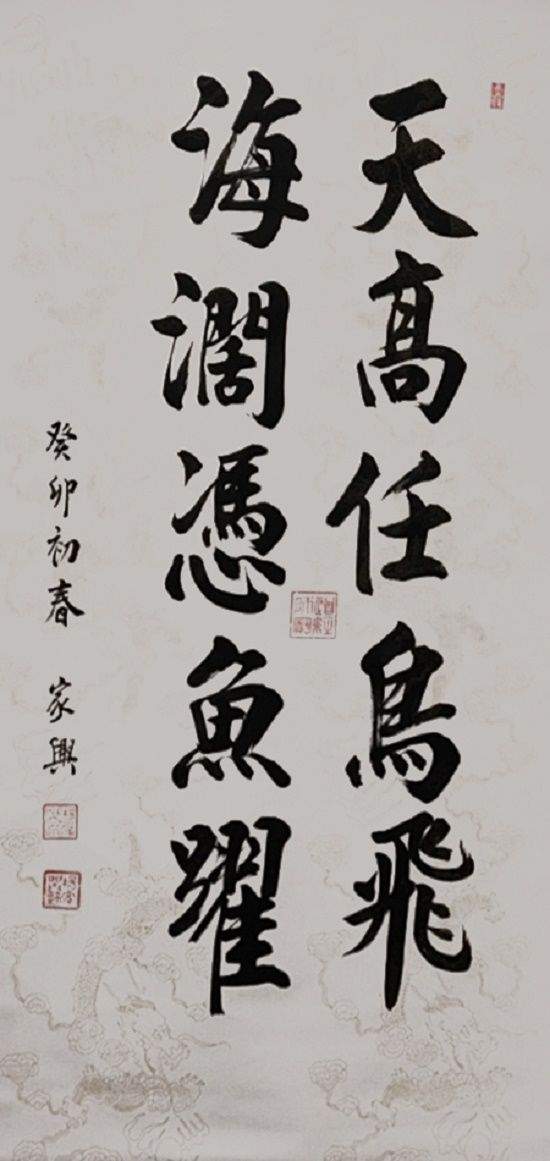 天高任鳥飛
海濶憑魚躍
癸卯初春 家興